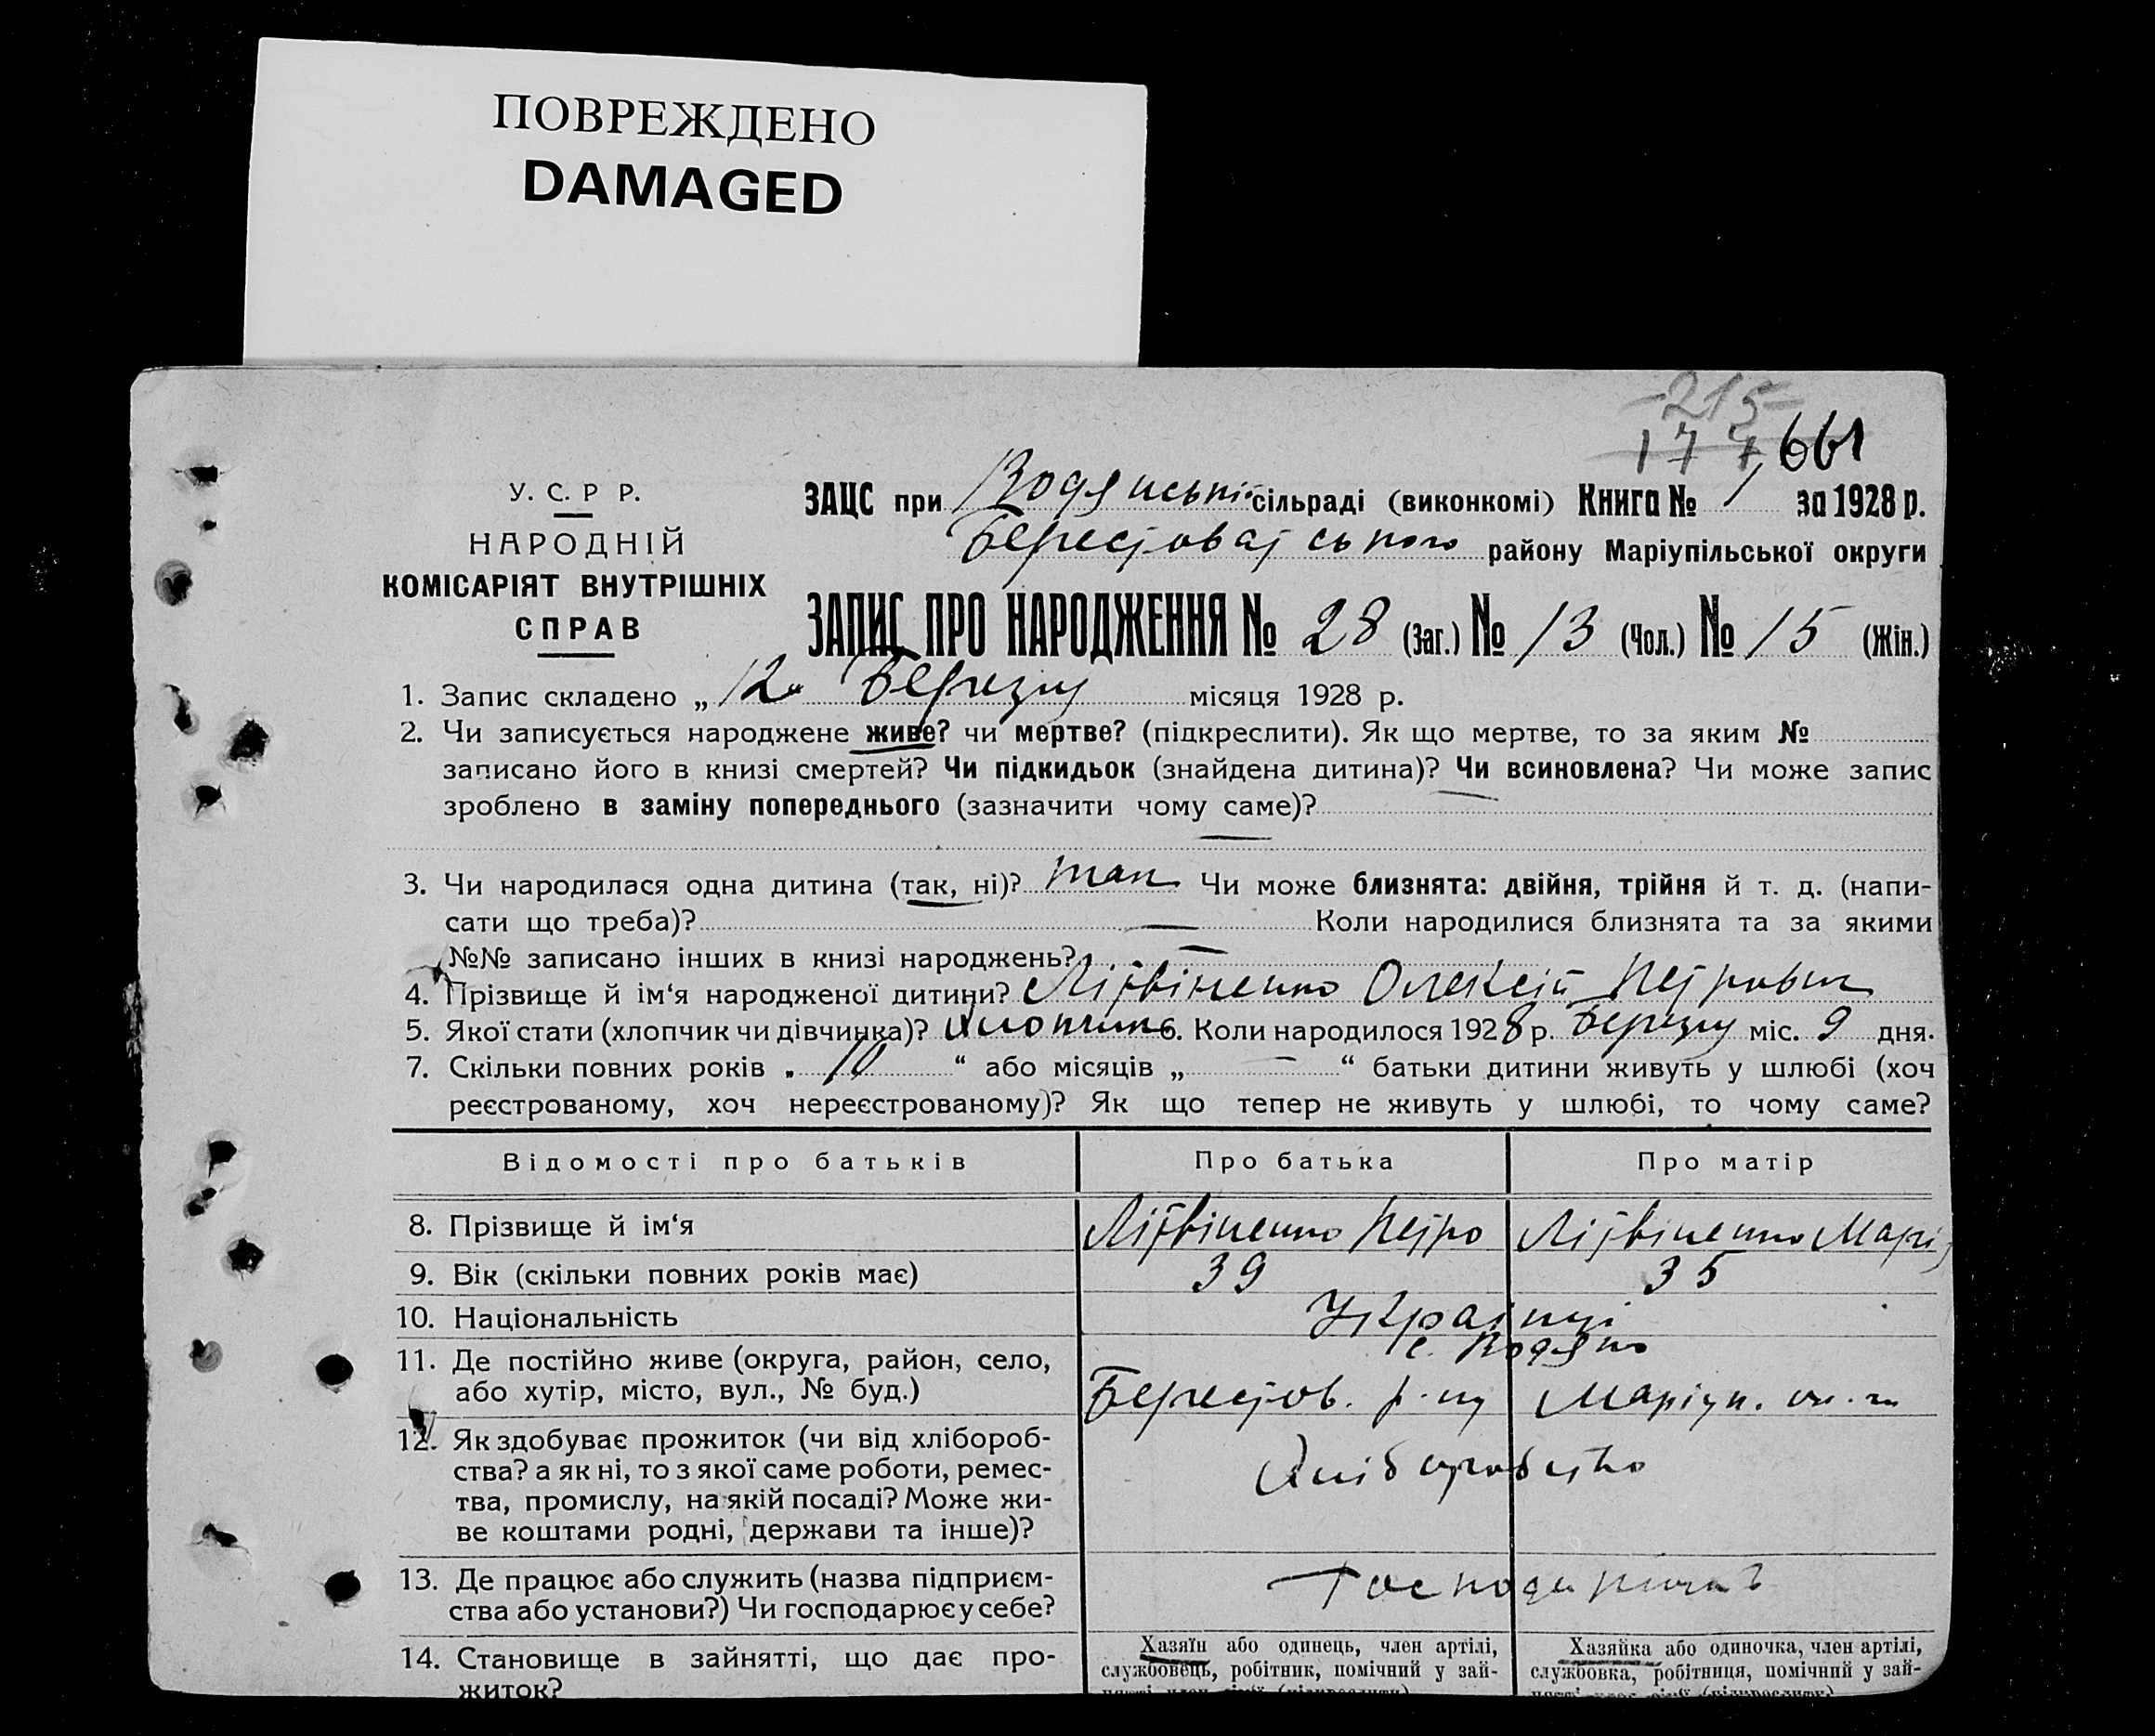 ПОВРЕЖДЕНО
DAMAGED
215
177 661
У. С. Р Р.
НАРОДНІЙ
КОМІСАРІЯТ ВНУТРІШНІХ
СПРАВ
ЗАЦС при Водянській сільраді (виконкомі) Книга № 1 за 1928 р.
Берестоватського району Маріупільської округи
ЗАПИС ПРО НАРОДЖЕННЯ № 28 (Заг.) № 13 (Чол.) № 15 (Жін.)
1. Запис складено „12“ Березня місяця 1928 р.
2. Чи записується народжене живе? чи мертве? (підкреслити). Як що мертве, то за яким №
записано його в книзі смертей? Чи підкидьок (знайдена дитина)? Чи всиновлена? Чи може запис
зроблено в заміну попереднього (зазначити чому саме)?
3. Чи народилася одна дитина (так, ні)? так Чи може близнята: двійня, трійня й т. д. (напи-
сати що треба)? — Коли народилися близнята та за якими
№№ записано інших в книзі народжень? —
4. Прізвище й ім‘я народженої дитини? Літвіненко Олексій Петрович
5. Якої стати (хлопчик чи дівчинка)? Хлопчик 6. Коли народилося 1928 р. Березня міс. 9 дня.
7. Скільки повних років „ 10 “ або місяців „ — “ батьки дитини живуть у шлюбі (хоч
реєстрованому, хоч нереєстрованому)? Як що тепер не живуть у шлюбі, то чому саме?
Відомості про батьків Про батька Про матір
8. Прізвище й ім‘я Літвіненко Петро Літвіненко Марія
9. Вік (скільки повних років має) 39 35
10. Національність Українці
с. Водяно
11. Де постійно живе (округа, район, село,
або хутір, місто, вул., № буд.) Берестов. р-ну Маріуп. ок-ги
12. Як здобуває прожиток (чи від хлібороб-
ства? а як ні, то з якої саме роботи, ремес- Хліборобство
тва, промислу, на якій посаді? Може жи-
ве коштами родні, держави та інше)?
13. Де працює або служить (назва підприєм-
ства або установи?) Чи господарює у себе?
14. Становище в зайнятті, що дає про-
житок?
Хазяїн або одинець, член артілі,
службовець, робітник, помічний у зай-
Хазяйка або одиночка, член артілі,
службовка, робітниця, помічний у зай-